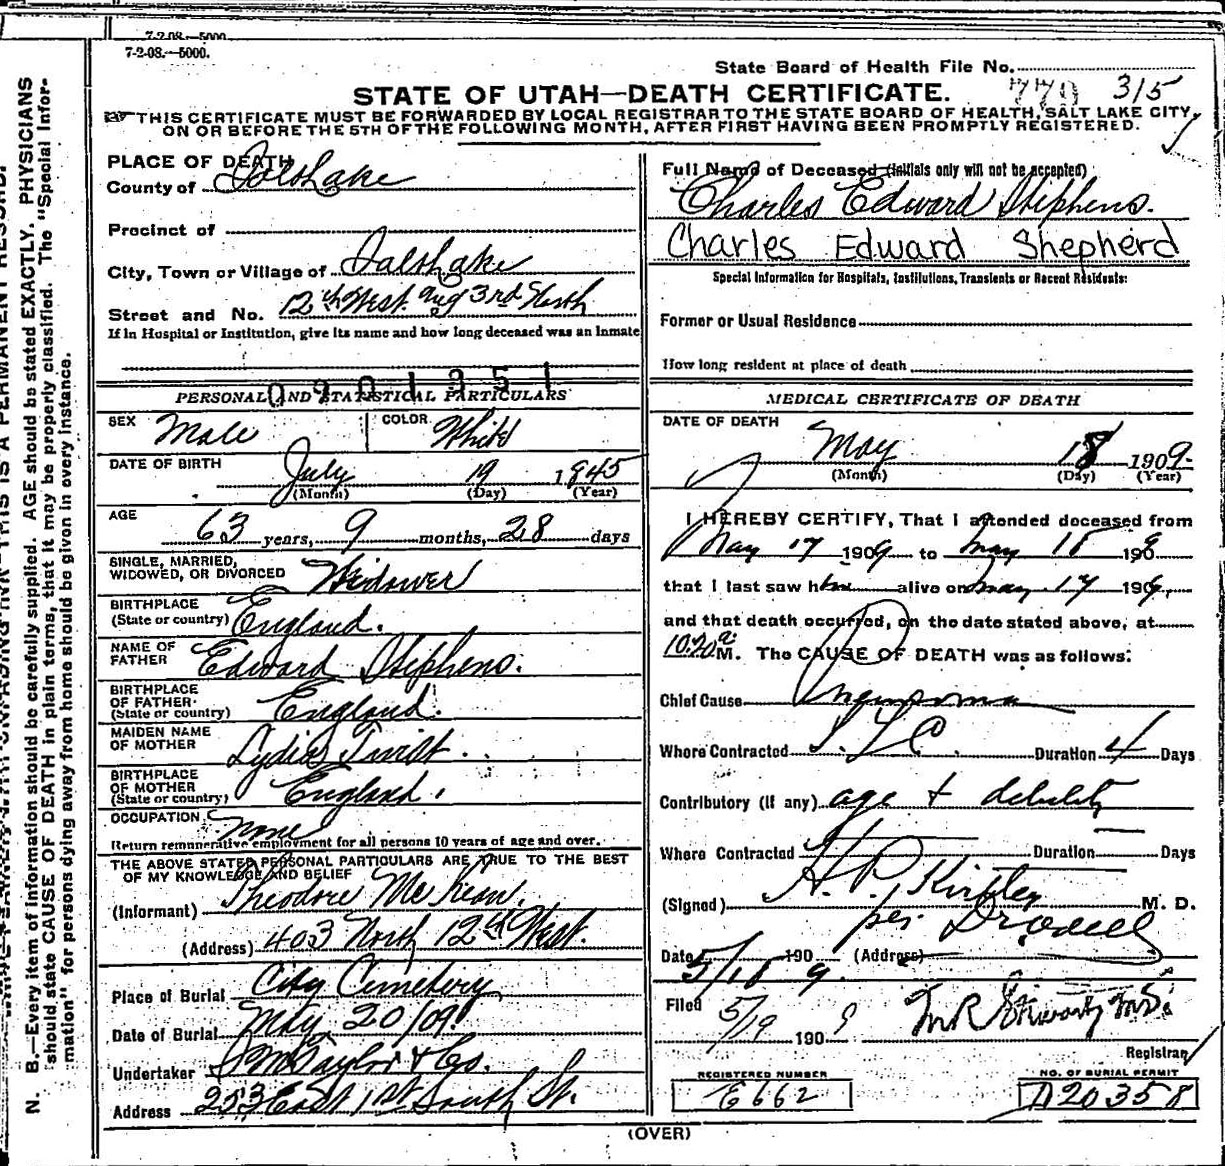 7-2-08.—5000.
7-2-08.—5000.
State Board of Health File No.
770 315
STATE OF UTAH—DEATH CERTIFICATE.
THIS CERTIFICATE MUST BE FORWARDED BY LOCAL REGISTRAR TO THE STATE BOARD OF HEALTH, SALT LAKE CITY,
ON OR BEFORE THE 5TH OF THE FOLLOWING MONTH, AFTER FIRST HAVING BEEN PROMPTLY REGISTERED.
PLACE OF DEATH
County of Salt Lake
Precinct of
City, Town or Village of Salt Lake
Street and No. 12th West. and 3rd North
If in Hospital or Institution, give its name and how long deceased was an Inmate
0901351
PERSONAL AND STATISTICAL PARTICULARS
SEX Male COLOR White
DATE OF BIRTH July 19 1845
(Month) (Day) (Year)
AGE 63 years, 9 months, 28 days
SINGLE, MARRIED,
WIDOWED, OR DIVORCED Widower
BIRTHPLACE
(State or country) England.
NAME OF
FATHER Edward Stephens.
BIRTHPLACE
OF FATHER
(State or country) England.
MAIDEN NAME
OF MOTHER Lydia
BIRTHPLACE
OF MOTHER
(State or country) England.
OCCUPATION None
Return remunerative employment for all persons 10 years of age and over.
THE ABOVE STATED PERSONAL PARTICULARS ARE TRUE TO THE BEST
OF MY KNOWLEDGE AND BELIEF
(Informant) Theodore McKean.
(Address) 403 North 12th West.
Place of Burial City Cemetery
Date of Burial May 20/09.
Undertaker Taylor & Co.
Address 253 East 1st South St.
Full Name of Deceased (initials only will not be accepted)
Charles Edward Stephens.
Charles Edward Shepherd
Special Information for Hospitals, Institutions, Transients or Recent Residents:
Former or Usual Residence
How long resident at place of death
MEDICAL CERTIFICATE OF DEATH
DATE OF DEATH
May 18 1909.
(Month) (Day) (Year)
I HEREBY CERTIFY, That I attended deceased from
May 17 1909 to May 18 1909
that I last saw him alive on May 17 1909,
and that death occurred, on the date stated above, at
10:20 a. M. The CAUSE OF DEATH was as follows:
Chief Cause Pneumonia
Where Contracted S. L. C. Duration 4 Days
Contributory (if any) age + debility
Where Contracted Duration Days
(Signed) H. P. M. D.
per
Date 5/18 1909. (Address)
Filed 5/19 1909
Registrar
REGISTERED NUMBER
E662
NO. OF BURIAL PERMIT
D20358
(OVER)
N. B.—Every item of information should be carefully supplied. AGE should be stated EXACTLY. PHYSICIANS
should state CAUSE OF DEATH in plain terms, that it may be properly classified. The "Special Infor-
mation" for persons dying away from home should be given in every instance.